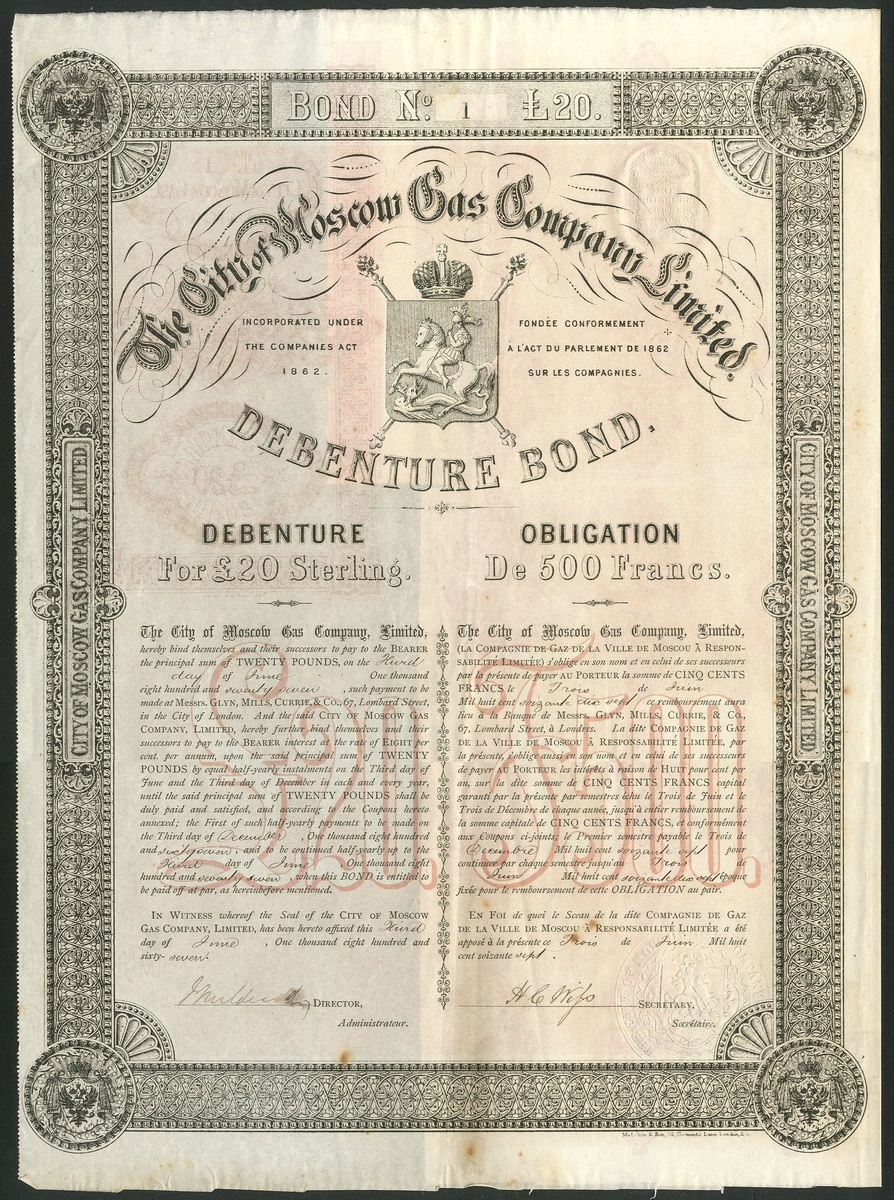 BOND No. 1 £20.
The City of Moscow Gas Company Limited.
INCORPORATED UNDER
THE COMPANIES ACT
1862.
FONDÉE CONFORMEMENT
À L'ACT DU PARLEMENT DE 1862
SUR LES COMPAGNIES.
DEBENTURE BOND.
CITY OF MOSCOW GAS COMPANY LIMITED
CITY OF MOSCOW GAS COMPANY LIMITED
DEBENTURE
For £20 Sterling.
The City of Moscow Gas Company, Limited,
hereby bind themselves and their successors to pay to the BEARER
the principal sum of TWENTY POUNDS, on the Third
day of June One thousand
eight hundred and seventy seven, such payment to be
made at Messrs. GLYN, MILLS, CURRIE, & CO., 67, Lombard Street,
in the City of London. And the said CITY OF MOSCOW GAS
COMPANY, LIMITED, hereby further bind themselves and their
successors to pay to the BEARER interest at the rate of EIGHT per
cent. per annum, upon the said principal sum of TWENTY
POUNDS by equal half-yearly instalments on the Third day of
June and the Third day of December in each and every year,
until the said principal sum of TWENTY POUNDS shall be
duly paid and satisfied, and according to the Coupons hereto
annexed; the First of such half-yearly payments to be made on
the Third day of December, One thousand eight hundred
and sixty seven, and to be continued half-yearly up to the
Third day of June, One thousand eight
hundred and seventy seven, when this BOND is entitled to
be paid off at par, as hereinbefore mentioned.
IN WITNESS whereof the Seal of the CITY OF MOSCOW
GAS COMPANY, LIMITED, has been hereto affixed this Third
day of June, One thousand eight hundred and
sixty-seven.
DIRECTOR,
Administrateur.
OBLIGATION
De 500 Francs.
The City of Moscow Gas Company, Limited,
(LA COMPAGNIE DE GAZ DE LA VILLE DE MOSCOU À RESPON-
SABILITÉ LIMITÉE) s'oblige en son nom et en celui de ses successeurs
par la présente de payer AU PORTEUR la somme de CINQ CENTS
FRANCS le Trois de Juin
Mil huit cent soixante dix sept ce remboursement aura
lieu à la Banque de Messrs. GLYN, MILLS, CURRIE, & CO.,
67, Lombard Street, à Londres. La dite COMPAGNIE DE GAZ
DE LA VILLE DE MOSCOU À RESPONSABILITÉ LIMITÉE, par
la présente, s'oblige aussi en son nom et en celui de ses successeurs
de payer AU PORTEUR les intérêts à raison de HUIT pour cent per
an, sur la dite somme de CINQ CENTS FRANCS capital
garanti par la présente par semestres échu le Trois de Juin et le
Trois de Décembre de chaque année, jusqu'à entier remboursement de
la somme capitale de CINQ CENTS FRANCS, et conformément
aux Coupons ci-joints; le Premier semestre payable le Trois de
Decembre Mil huit cent soixante sept pour
continuer par chaque semestre jusqu'au Trois de
Juin Mil huit cent soixante dix sept époque
fixée pour le remboursement de cette OBLIGATION au pair.
EN FOI de quoi le Sceau de la dite COMPAGNIE DE GAZ
DE LA VILLE DE MOSCOU À RESPONSABILITÉ LIMITÉE a été
apposé à la présente ce Trois de Juin Mil huit
cent soixante sept.
SECRETARY.
Secrétaire.
£20. Fr500.